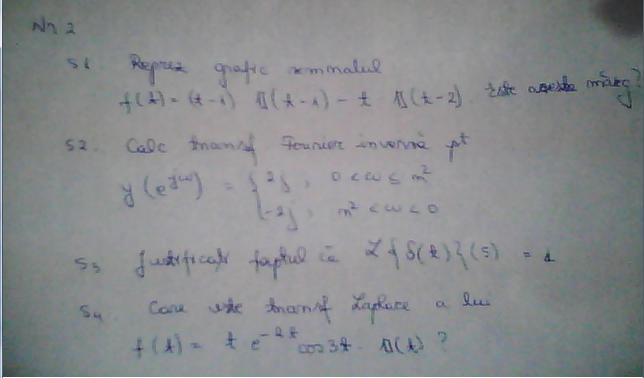 Nr 2
S1 Reprez grafic semnalul
f(t) = (t-1) 𝟙(t-1) - t 𝟙(t-2). Este acesta mărg?
S2. Calc transf Fourier inversă pt
y(e^{jω}) = { 2j, 0 < ω ≤ π²
-2j, π² < ω < 0
S3 Justificați faptul că L{δ(t)}(s) = 1
S4 Care este transf Laplace a lui
f(t) = t e^{-2t} cos3t · 𝟙(t) ?